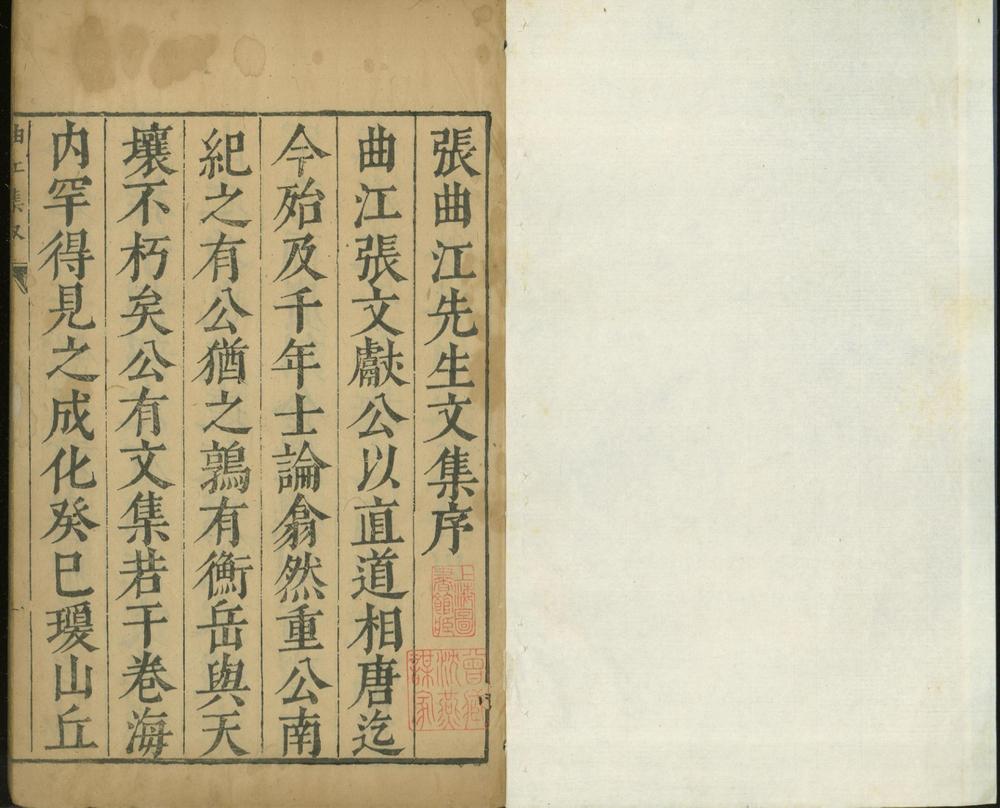 張曲江先生文集序
曲江張文獻公以直道相唐迄
今殆及千年士論翕然重公南
紀之有公猶之鶉有衡岳與天
壤不朽矣公有文集若干卷海
内罕得見之成化癸巳瓊山丘
曲江集
上海圖書館臧